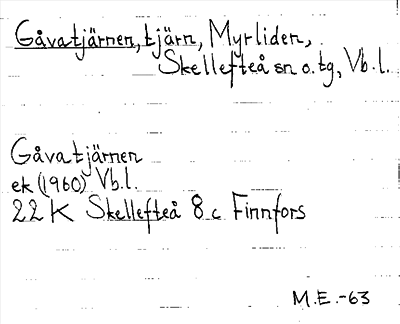 Gåvatjärnen, tjärn, Myrliden,
Skellefteå sn o. tg, Vb. l.
Gåvatjärnen
ek (1960) Vb. l.
22 K Skellefteå 8 c Finnfors
M.E.-63